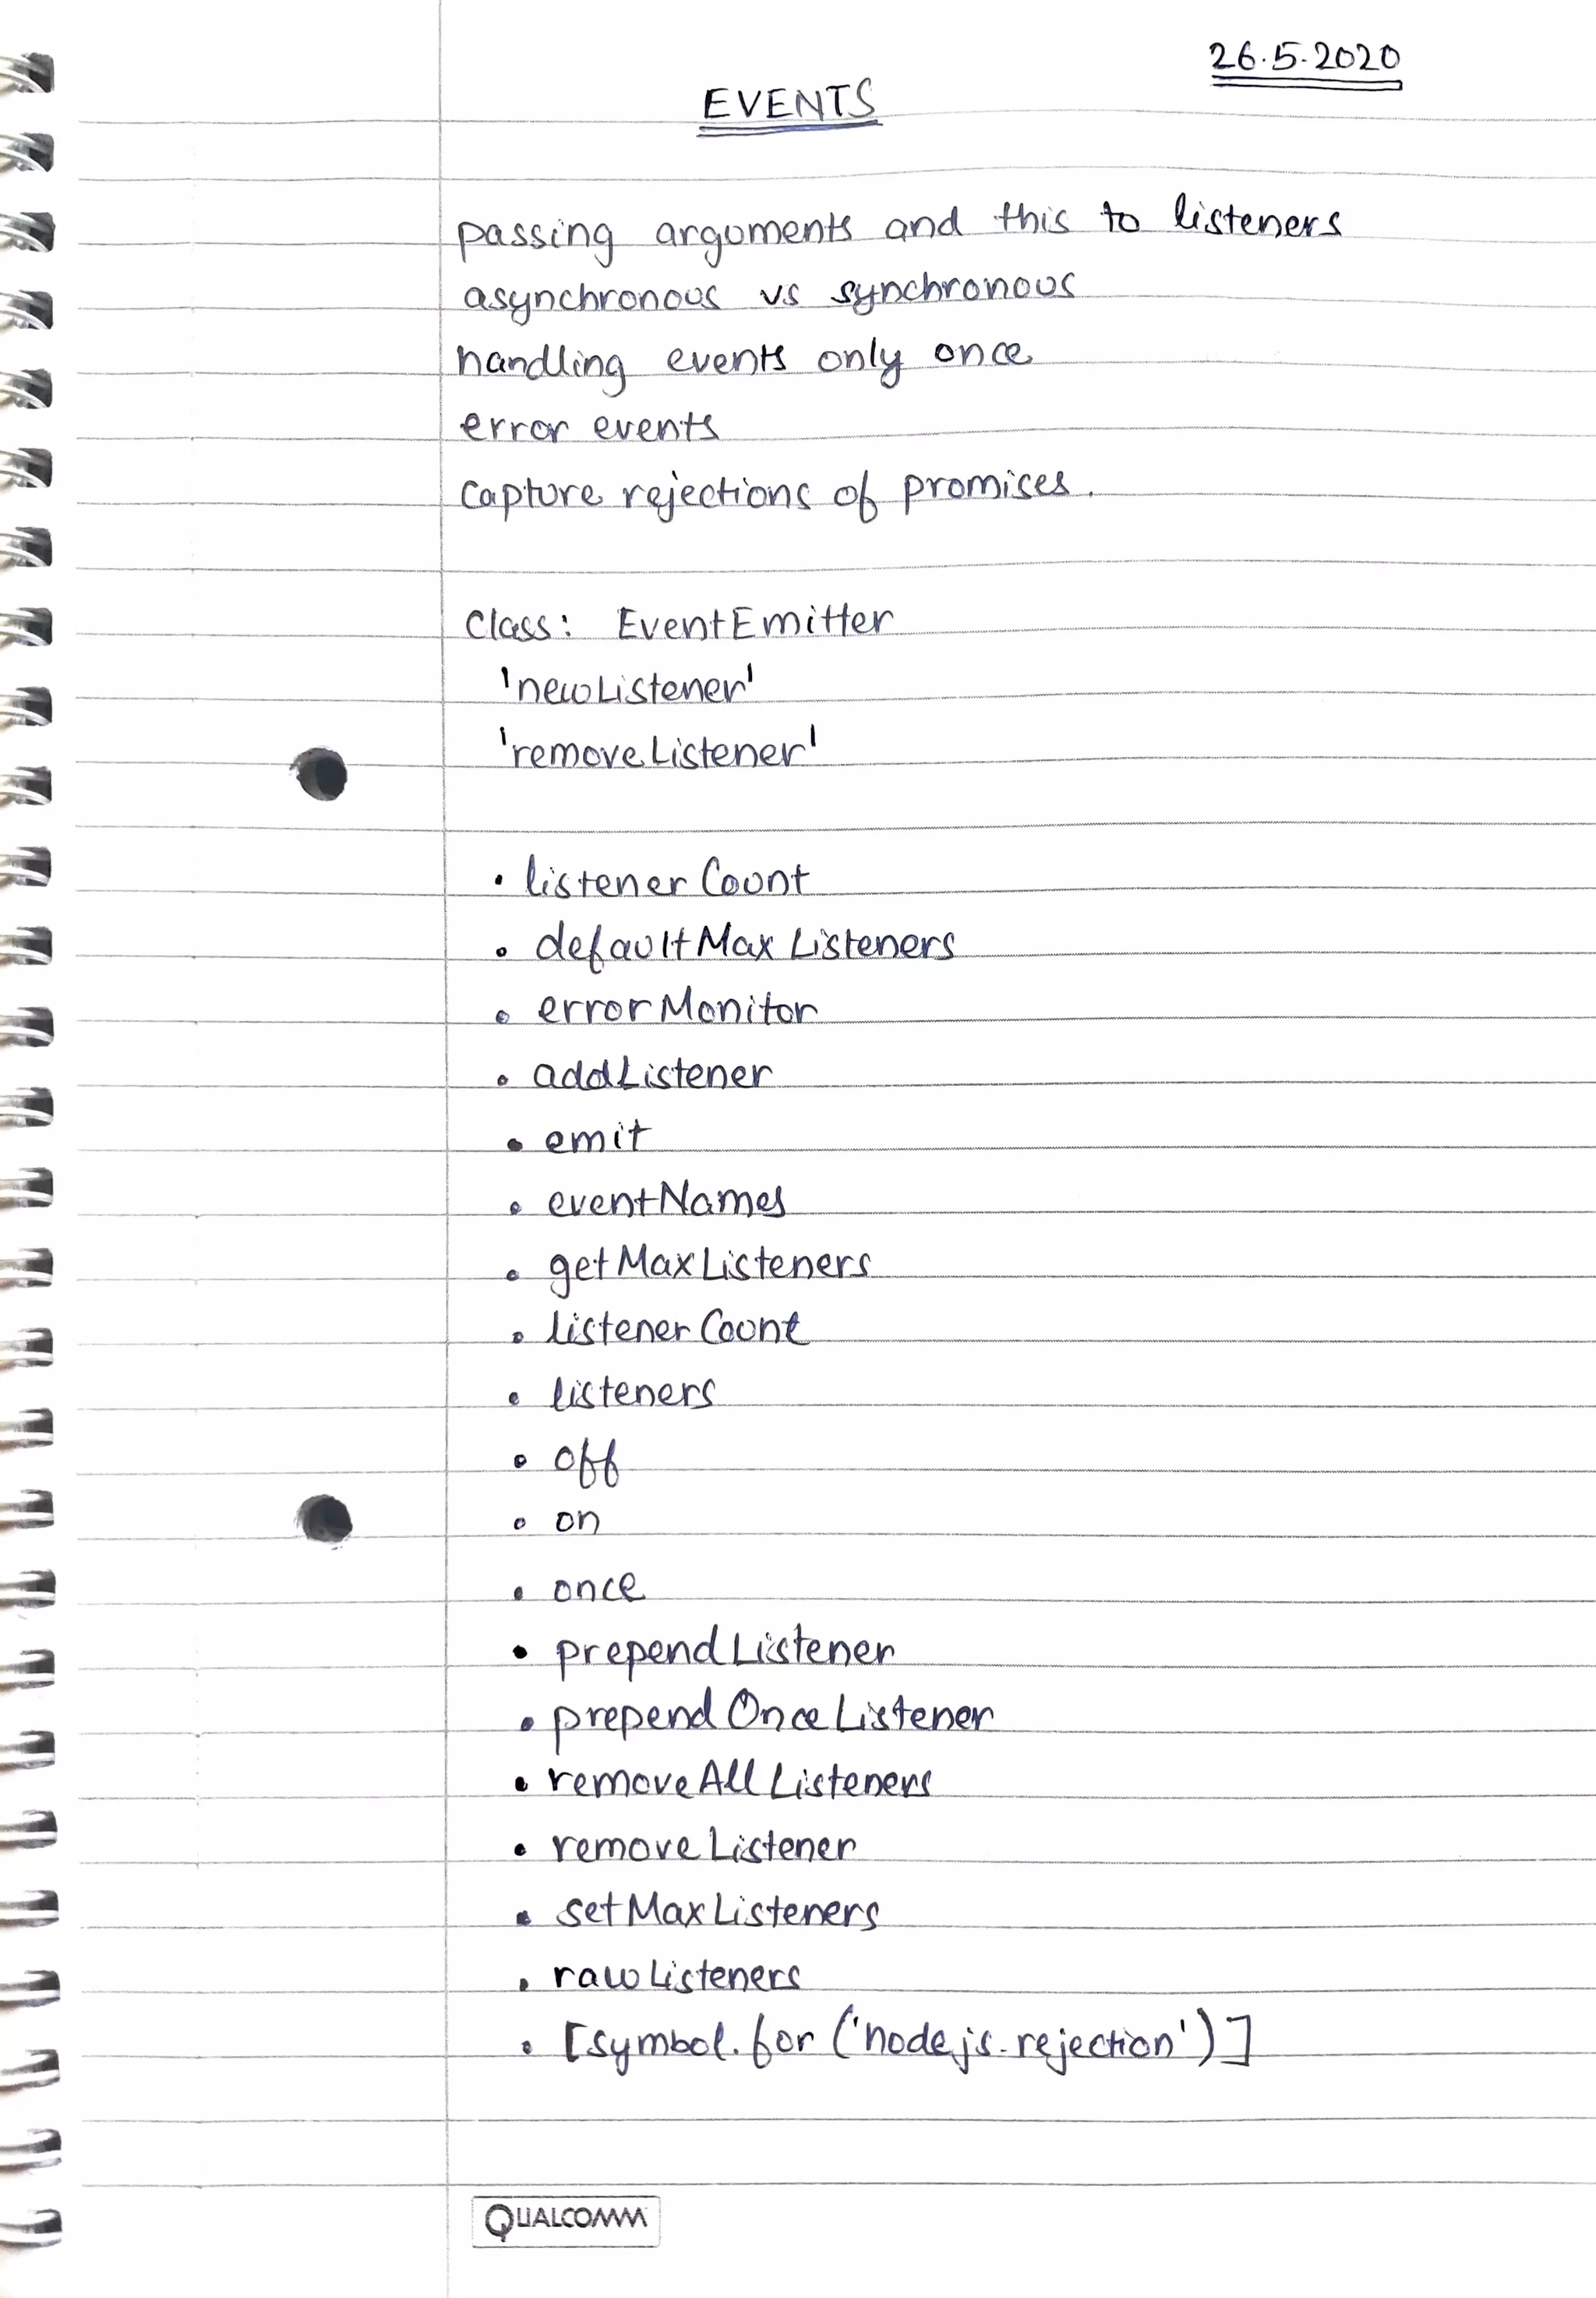 26.5.2020
EVENTS
passing arguments and this to listeners
asynchronous vs synchronous
handling events only once
error events
capture rejections of promises.
Class: EventEmitter
'newListener'
'removeListener'
• listenerCount
• defaultMaxListeners
• errorMonitor
• addListener
• emit
• eventNames
• getMaxListeners
• listenerCount
• listeners
• off
• on
• once
• prependListener
• prependOnceListener
• removeAllListeners
• removeListener
• setMaxListeners
• rawListeners
• [symbol.for('nodejs.rejection')]
QUALCOMM